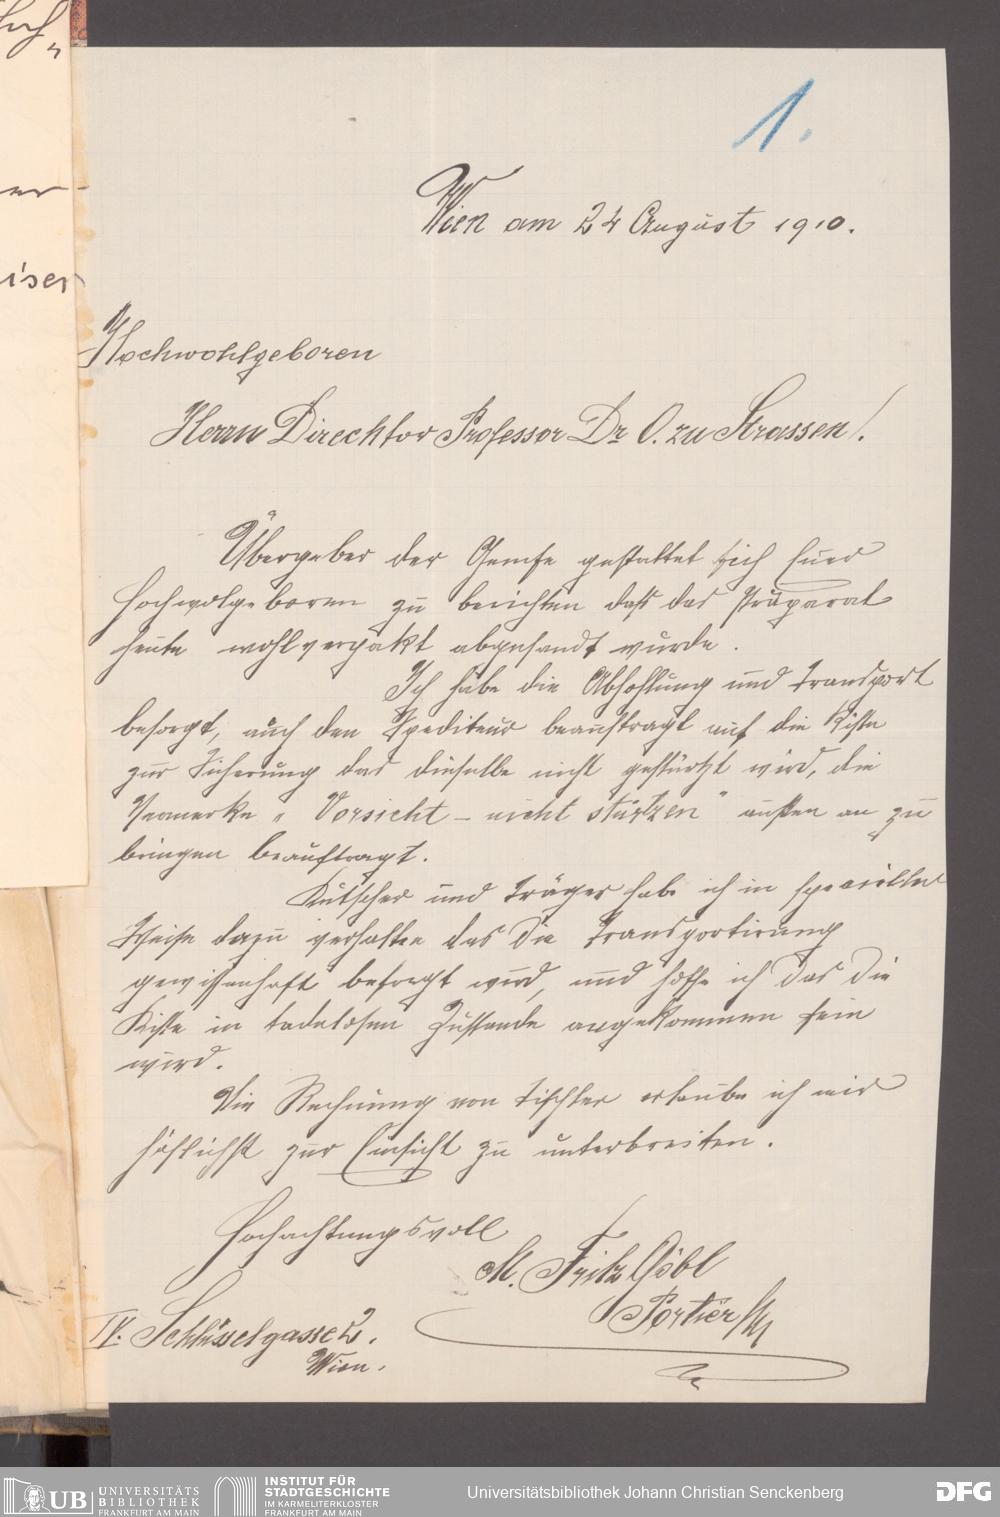 1.
Wien am 24 August 1910.
Hochwohlgeboren
Herrn Direcktor Professor Dr O. zu Strassen!
Übergeber der Gemse gestattet sich Euer
Hochwolgeboren zu berichten daß das Präparat
heute wohlverpakt abgesandt wurde.
Ich habe die Abhohlung und Transport
besorgt, auch den Spediteur beauftragt auf die Kiste
zur Sicherung das dieselbe nicht gestürtzt wird, die
Vermerke „Vorsicht – nicht stürtzen" außen an zu
bringen beauftragt.
Kutscher und Träger habe ich in specieller
Weise dazu verhalten das die Transportirung
gewissenhaft besorgt wird, und hoffe ich das die
Kiste in tadelosen Zustande angekommen sein
wird.
Die Rechnung von Tischler erlaube ich mir
höflichst zur Einsicht zu unterbreiten.
Hochachtungsvoll
M. Fritz Göbl
Portier
IV. Schlüsselgasse 2.
Wien.
iser
UB UNIVERSITÄTS
BIBLIOTHEK
FRANKFURT AM MAIN
INSTITUT FÜR
STADTGESCHICHTE
IM KARMELITERKLOSTER
FRANKFURT AM MAIN
Universitätsbibliothek Johann Christian Senckenberg
DFG